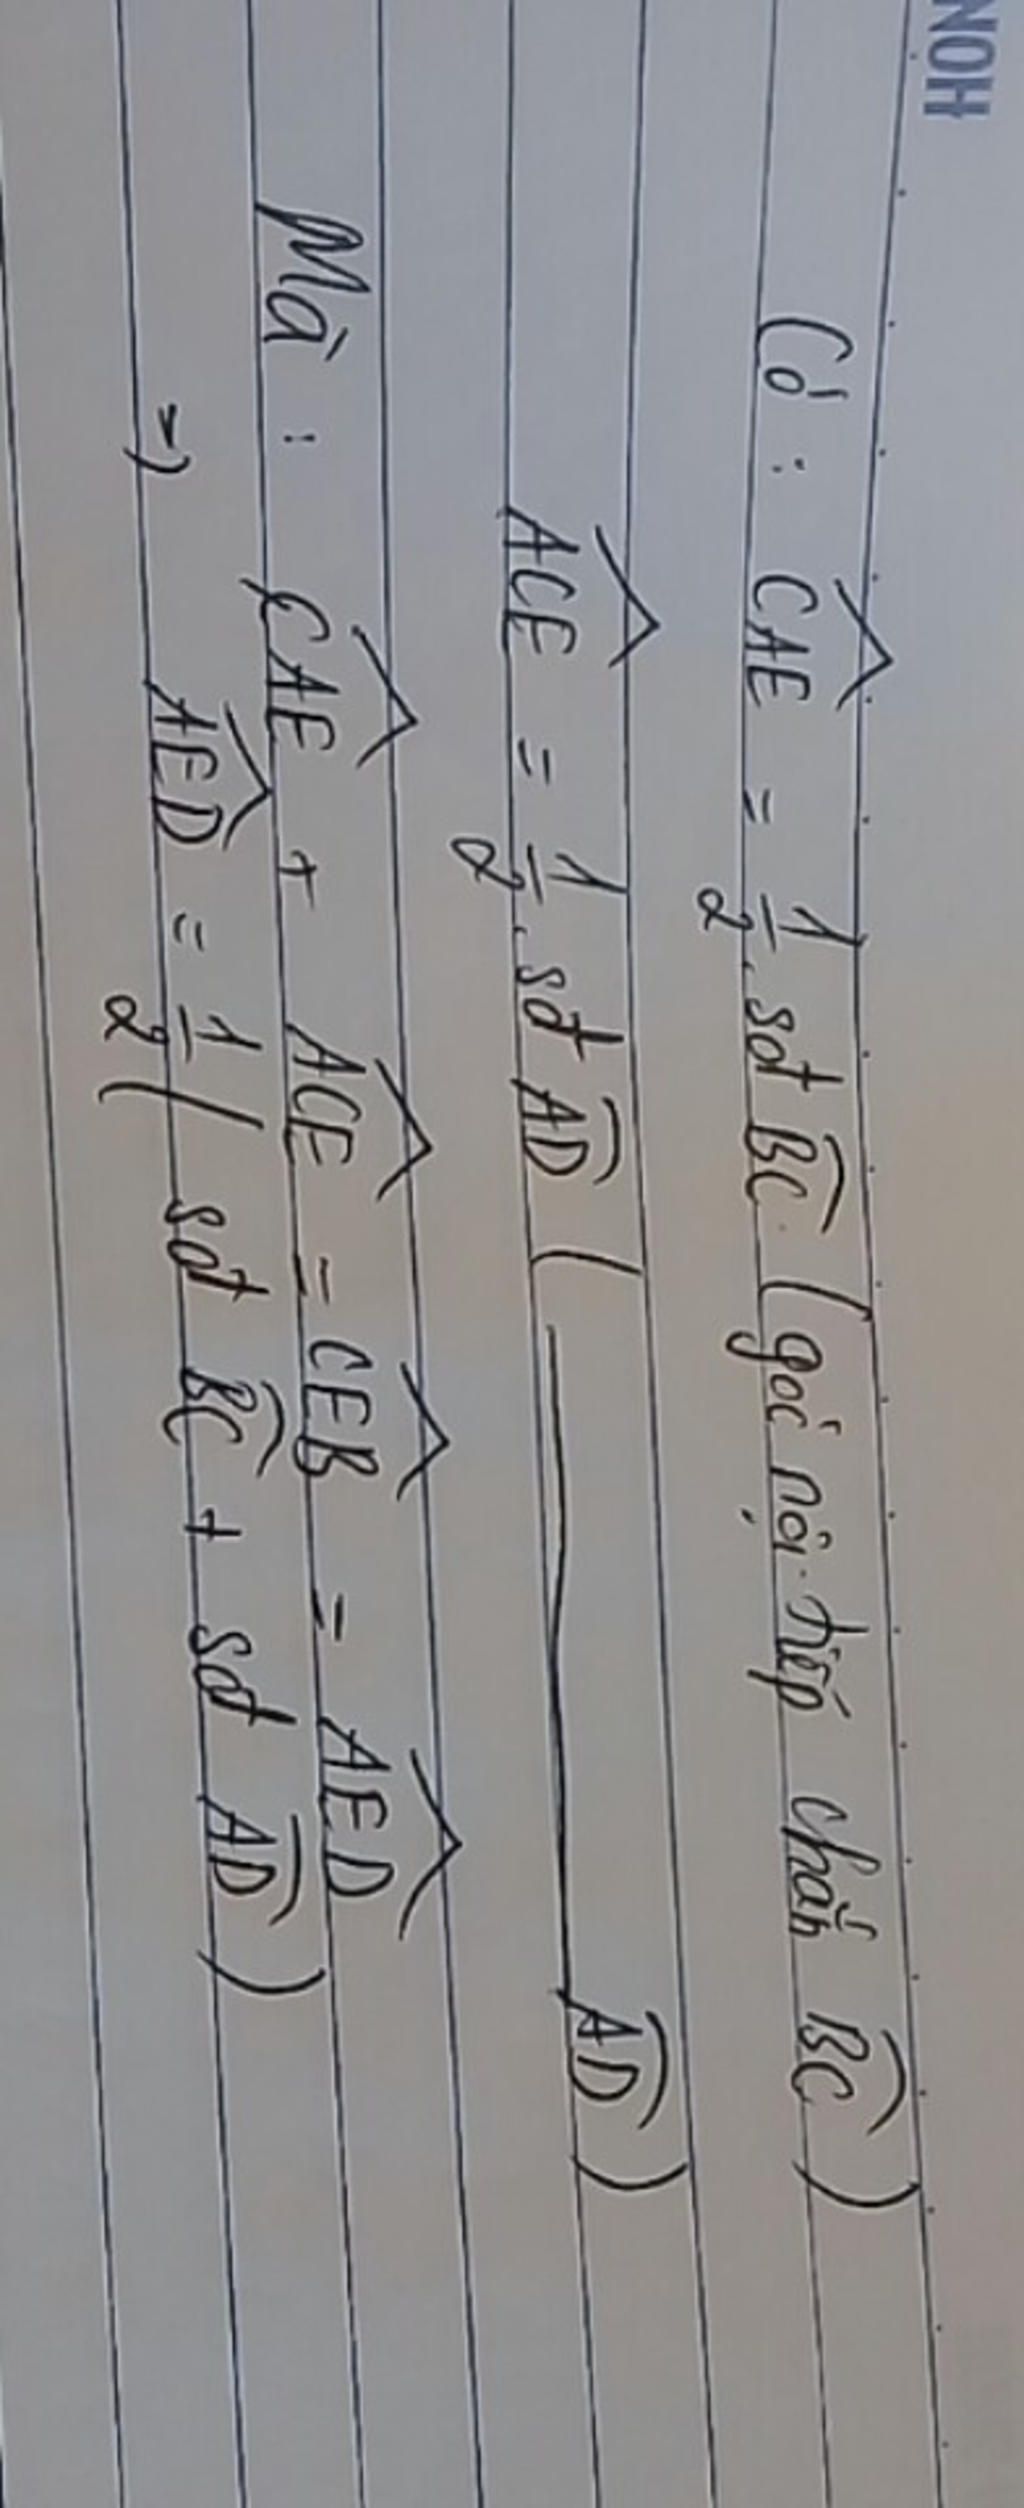 NOH
Có : $\widehat{CAE} = \frac{1}{2}.sđ \overset{\frown}{BC}$. (góc nội tiếp chắn $\overset{\frown}{BC}$)
$\widehat{ACE} = \frac{1}{2}.sđ \overset{\frown}{AD}$ ( ——— $\overset{\frown}{AD}$)
Mà : $\widehat{CAE} + \widehat{ACE} = \widehat{CEB} = \widehat{AED}$
=) $\widehat{AED} = \frac{1}{2} ( sđ \overset{\frown}{BC} + sđ \overset{\frown}{AD} )$